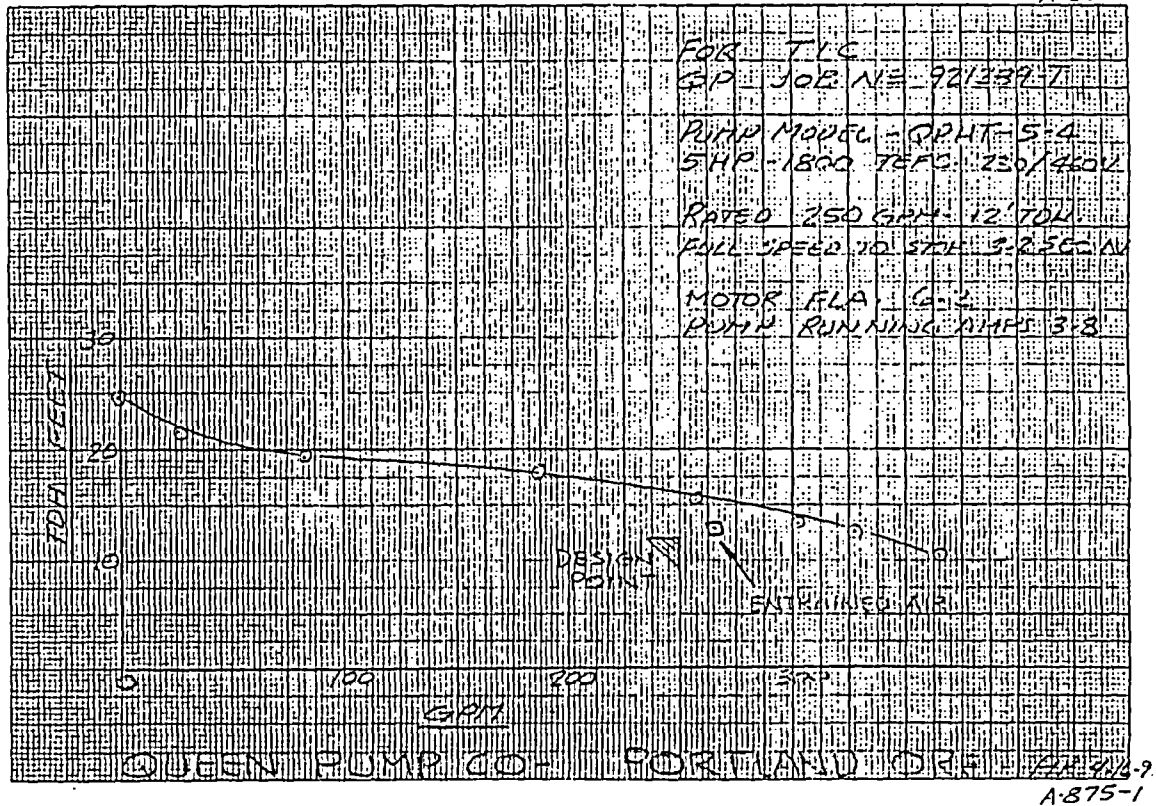 FOR TLC
QP JOB No 921289-T
PUMP MODEL - QPHT-5-4
5 HP - 1800 TEFC 230/460V
RATED 250 GPM 12' TDH.
FULL SPEED TO
MOTOR FLA. 6.2
PUMP RUNNING AMPS 3.8
30
TDH FEET
20
10
DESIGN
POINT
ENTRAINED AIR
0 100 200 300
GPM
QUEEN PUMP CO - PORTLAND ORE
A-875-1